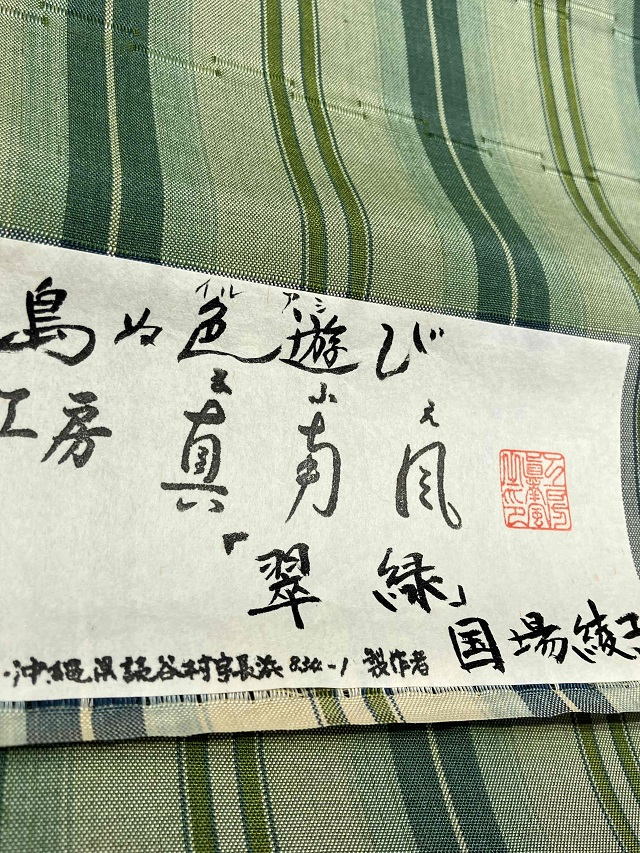 イル アシ
島ぬ色遊び
工房 真南風
「翠緑」
沖縄県読谷村字長浜 製作者 国場綾子